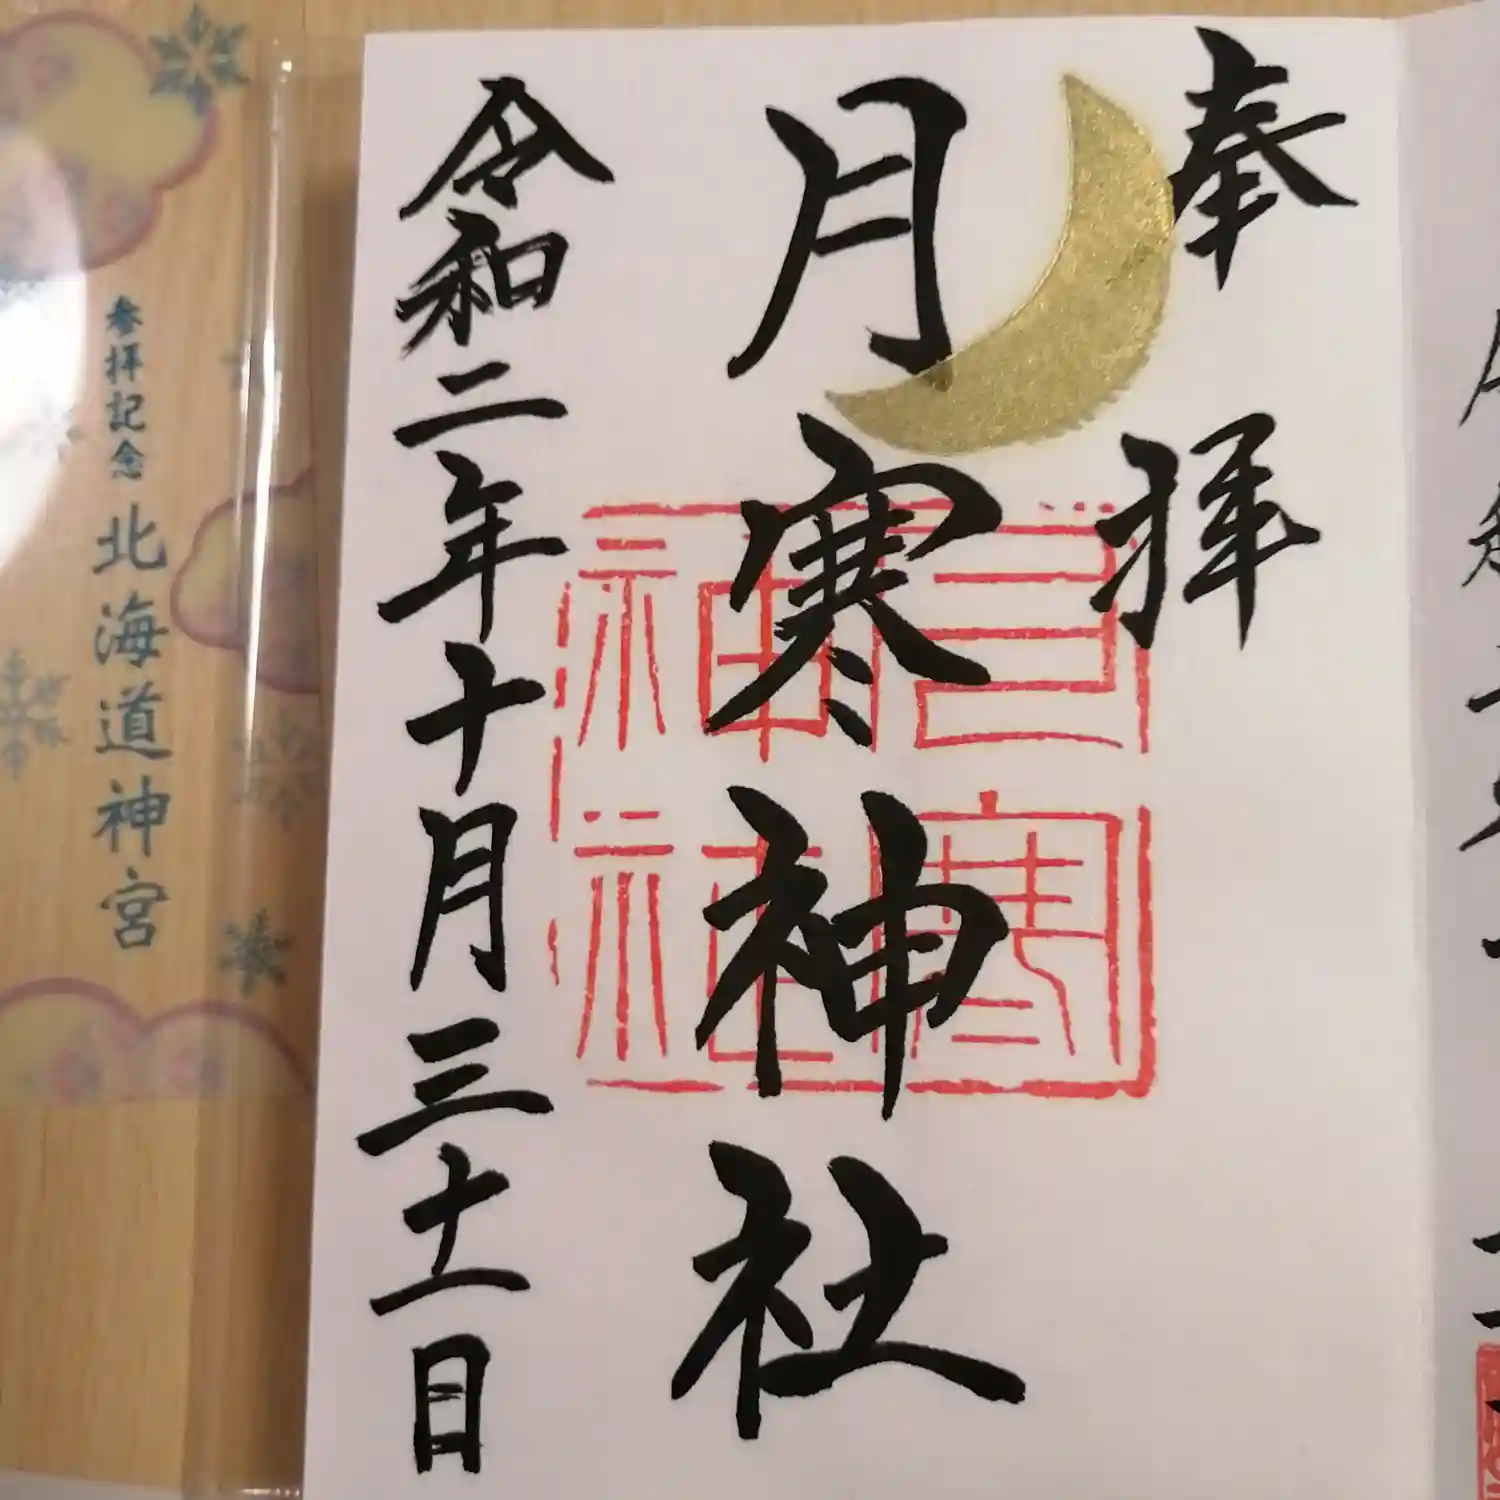 奉拝
月寒神社
令和二年十月三十一日
月寒神社
参拝記念 北海道神宮